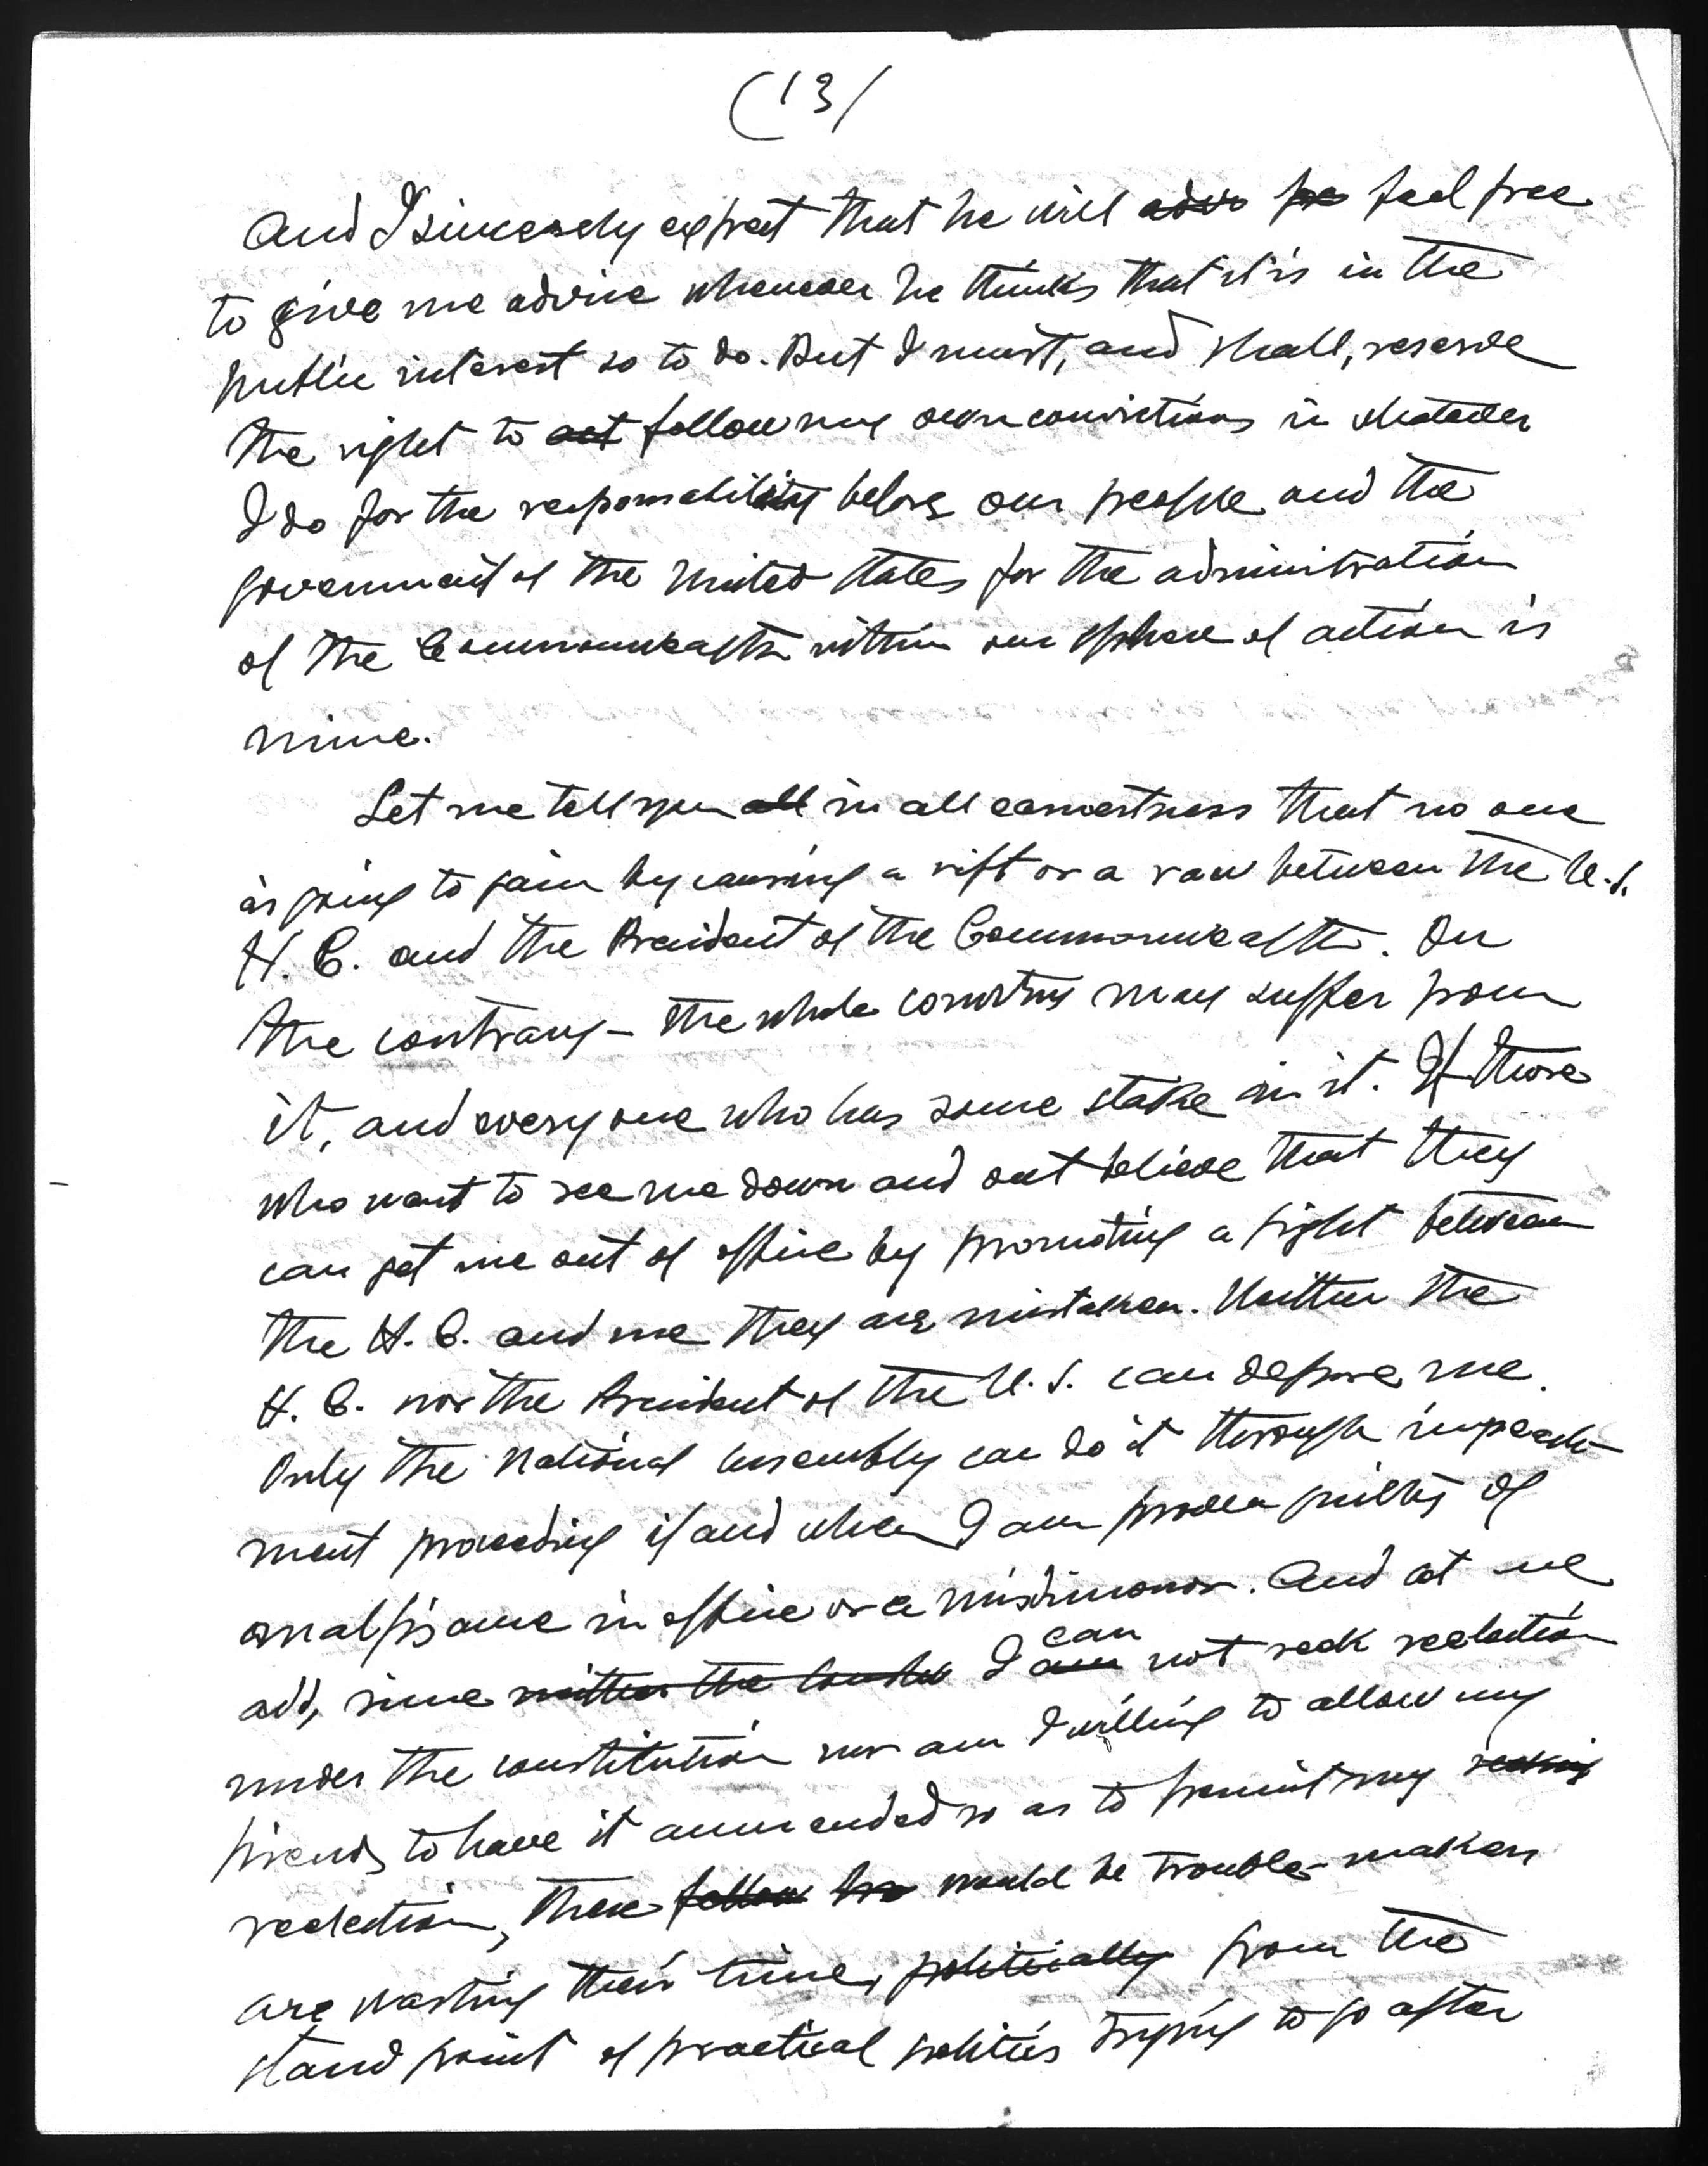 (13/
And I sincerely expect that he will feel free
to give me advice whenever he thinks that it is in the
public interest so to do. But I must, and shall, reserve
the right to act follow my own convictions in whatever
I do for the responsability before our people and the
government of the United States for the administration
of the Commonwealth within our sphere of action is
mine.
Let me tell you all in all earnestness that no one
is going to gain by causing a rift or a row between the U.S.
H. C. and the President of the Commonwealth. On
the contrary – the whole country may suffer from
it, and everyone who has some stake in it. If those
who want to see me down and out believe that they
can get me out of office by promoting a fight between
the H. C. and me they are mistaken. Neither the
H. C. nor the President of the U.S. can depose me.
Only the National Assembly can do it through impeach-
ment proceeding if and when I am proven guilty of
malfisance in office or a misdimonor. And at we
can
add, since neither the I am not seek reelection
under the constitution nor am I willing to allow my
friends to have it ammended so as to permit my seeking
reelection, these fellow would be trouble-makers
are wasting their time, politically from the
stand point of practical politics trying to go after